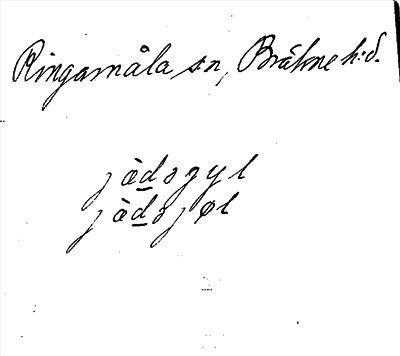 Ringamåla sn, Bräkne h:d.
jàd̲ɜgyl
jàd̲ɜjøl